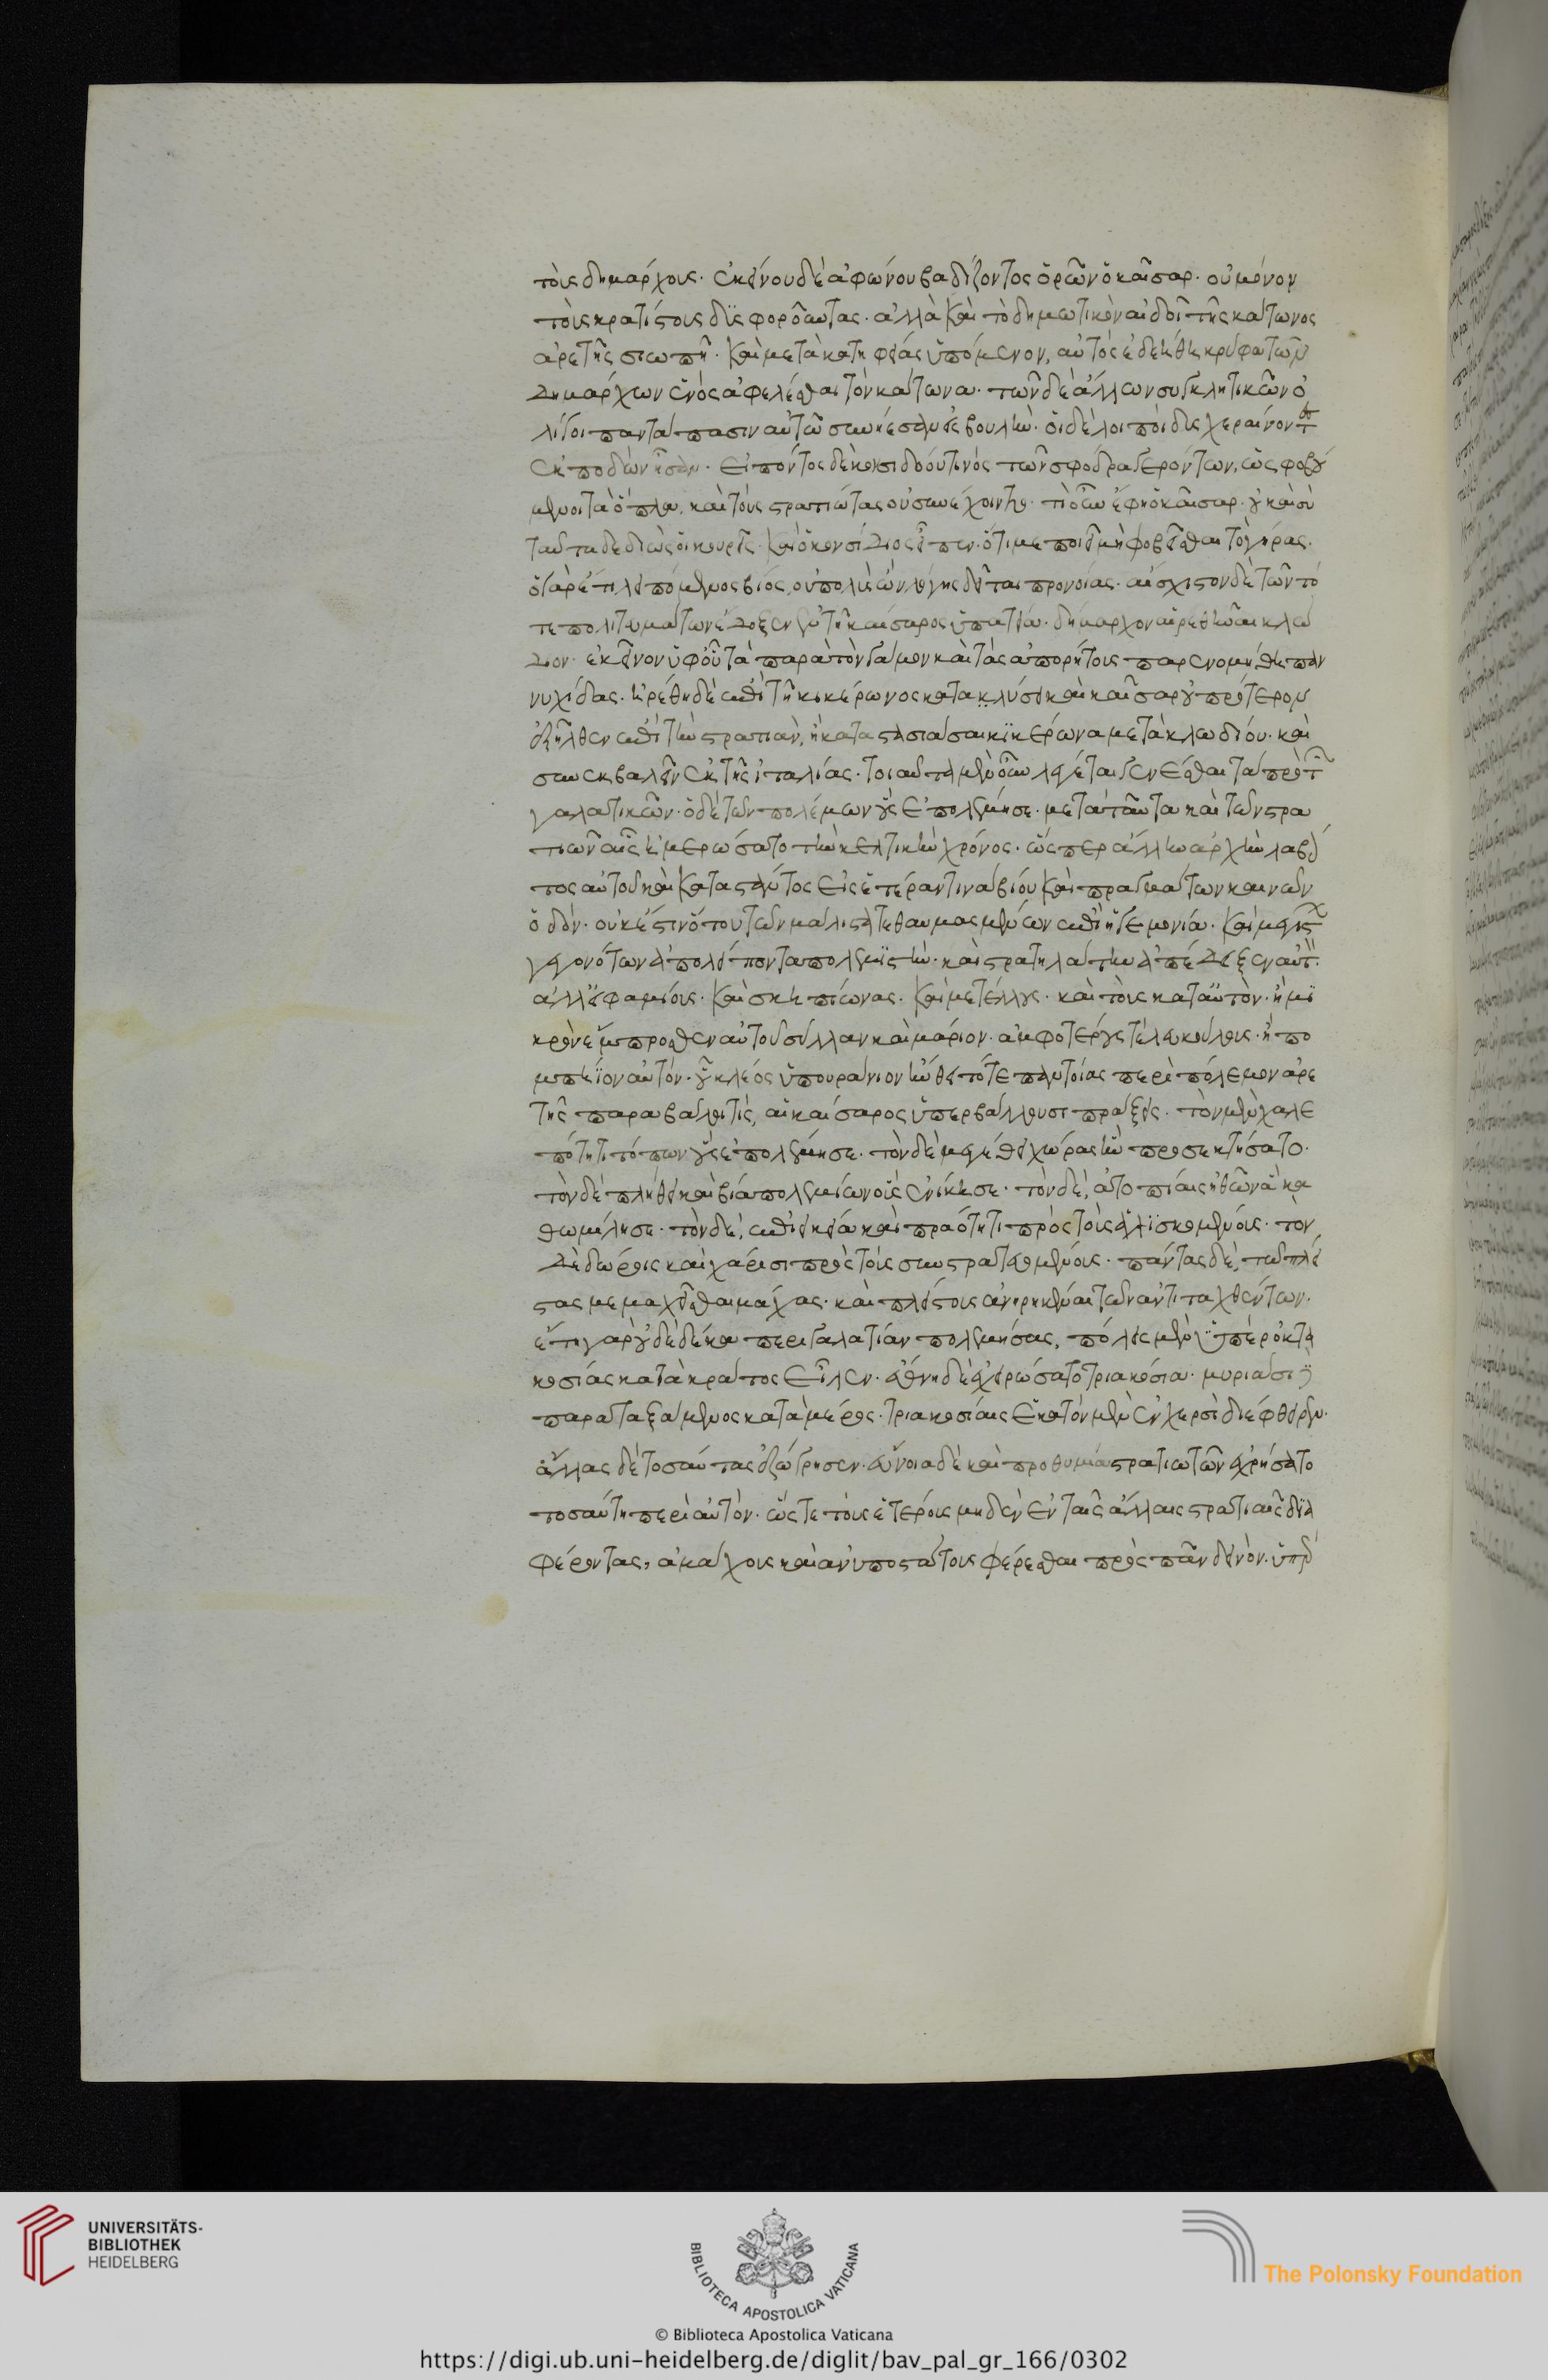 τοῖς δημάρχοις. ἐκείνου δὲ ἀφώνου βαδίζοντος ὁρῶν ὁ καῖσαρ. οὐ μόνον
τοὺς κρατίστους δυσφοροῦντας. ἀλλὰ καὶ τὸ δημωτικὸν αἰδοῖ τῆς κάτωνος
ἀρετῆς σιωπῆ. καὶ μετὰ κατηφείας ὑπόμενον, αὐτὸς ἐδεήθη κρύφα τῶν
δημάρχων ἑνὸς ἀφελέσθαι τὸν κάτωνα. τῶν δὲ ἄλλων συγκλητικῶν ὀ
λίγοι παντάπασιν αὐτῶ συνήεσαν εἰς βουλήν. οἱ δὲ λοιποὶ δυσχεραίνοντες
ἐκποδὼν ἦσαν. εἰπόντος δὲ κονσιδίου τινὸς τῶν σφόδρα γερόντων, ὡς φοβού
μενοι τὰ ὅπλα, καὶ τοὺς στρατιώτας οὐ συνέρχοιντο. τί οὖν ἔφη ὁ καῖσαρ. οὐ καὶ σὺ
ταῦτα δεδιὼς οἰκουρεῖς. καὶ ὁ κονσίδιος εἶπεν. ὅτι με ποιεῖ μὴ φοβεῖσθαι τὸ γῆρας.
ὁ γὰρ ἔτι λειπόμενος βίος, οὐ πολὺς ὢν, ὀλίγης δεῖται προνοίας. αἴσχιστον δὲ τῶν τό
τε πολιτευμάτων ἔδοξεν ἐν τῆ καίσαρος ὑπατεία. δήμαρχον αἱρεθῆναι κλώ
διον ἐκεῖνον ὑφ' οὗ τὰ παρὰ τὸν γάμον καὶ τὰς ἀπορρήτους παρενομήθη παν
νυχίδας. ἡρέθη δὲ ἐπὶ τῆ κικέρωνος καταλύσει καὶ καῖσαρ οὐ πρότερον
ἐξῆλθεν ἐπὶ τὴν στρατιὰν, ἢ καταστασιάσαι κικέρωνα μετὰ κλωδίου. καὶ
συνεκβαλεῖν ἐκ τῆς ἰταλίας. τοιαῦτα μὲν οὖν λέγεται γενέσθαι τὰ πρὸ τῶν
γαλατικῶν. ὁ δὲ τῶν πολέμων οὓς ἐπολέμησε. μετὰ ταῦτα καὶ τῶν στρα
τιῶν αἷς ἡμερώσατο τὴν κελτικὴν χρόνος. ὥσπερ ἄλλην ἀρχὴν λαβόν
τος αὐτοῦ καὶ καταστάντος εἰς ἑτέραν τινὰ βίου καὶ πραγμάτων καινῶν
ὁδόν. οὐκ ἔστιν ὅτου τῶν μάλιστα τεθαυμασμένων ἐπὶ ἡγεμονία. καὶ μεγίστων
γεγονότων ἀπολείποντα πολεμιστὴν. καὶ στρατηλάτην ἀπέδειξεν αὐτόν.
ἀλλ' εἴτε φαβίους. καὶ σκηπίωνας. καὶ μετέλλους. καὶ τοὺς κατ' αὐτὸν. ἢ μι
κρὸν ἔμπροσθεν αὐτοῦ σύλλαν καὶ μάριον. ἀμφοτέρους τε λευκούλλους. ἢ πο
μπήϊον αὐτόν. οὗ κλέος ὑπουράνιον ἤνθει τότε παντοίας περὶ πόλεμον ἀρε
τῆς παραβάλοι τις, αἱ καίσαρος ὑπερβάλλουσι πράξεις. τὸν μὲν χαλε
πότητι τόπων οὓς ἐπολέμησε. τὸν δὲ μεγέθει χώρας ἣν προσεκτήσατο.
τὸν δὲ πλήθει καὶ βία πολεμίων οὓς ἐνίκησε. τὸν δὲ, ἀτοπίαις ἠθῶν ἃ κα
θωμίλησε. τὸν δὲ, ἐπιεικεία καὶ πραότητι πρὸς τοὺς ἁλισκομένους. τὸν
δὲ δώροις καὶ χάρισι πρὸς τοὺς συστρατευομένους. πάντας δὲ, τῶ πλεί
στας μεμαχῆσθαι μάχας. καὶ πλείστους ἀνηρηκέναι τῶν ἀντιταχθέντων.
ἔτη γὰρ οὐδὲ δέκα περὶ γαλατίαν πολεμήσας, πόλεις μὲν ὑπὲρ ὀκτα
κοσίας κατὰ κράτος εἷλεν. ἔθνη δὲ ἐχειρώσατο τριακόσια. μυριάσι δὲ
παραταξάμενος κατὰ μέρος. τριακοσίαις ἑκατὸν μὲν ἐν χερσὶ διέφθειρεν.
ἄλλας δὲ τοσαύτας ἐζώγρησεν. εὐνοία δὲ καὶ προθυμία στρατιωτῶν ἐχρήσατο
τοσαύτη περὶ αὐτὸν. ὥστε τοὺς ἑτέρους μηδὲν ἐν ταῖς ἄλλαις στρατιαῖς δια
φέροντας, ἀμάχους καὶ ἀνυποστάτους φέρεσθαι πρὸς πᾶν δεινὸν. ὑπὲρ
UNIVERSITÄTS-
BIBLIOTHEK
HEIDELBERG
BIBLIOTECA APOSTOLICA VATICANA
The Polonsky Foundation
© Biblioteca Apostolica Vaticana
https://digi.ub.uni-heidelberg.de/diglit/bav_pal_gr_166/0302